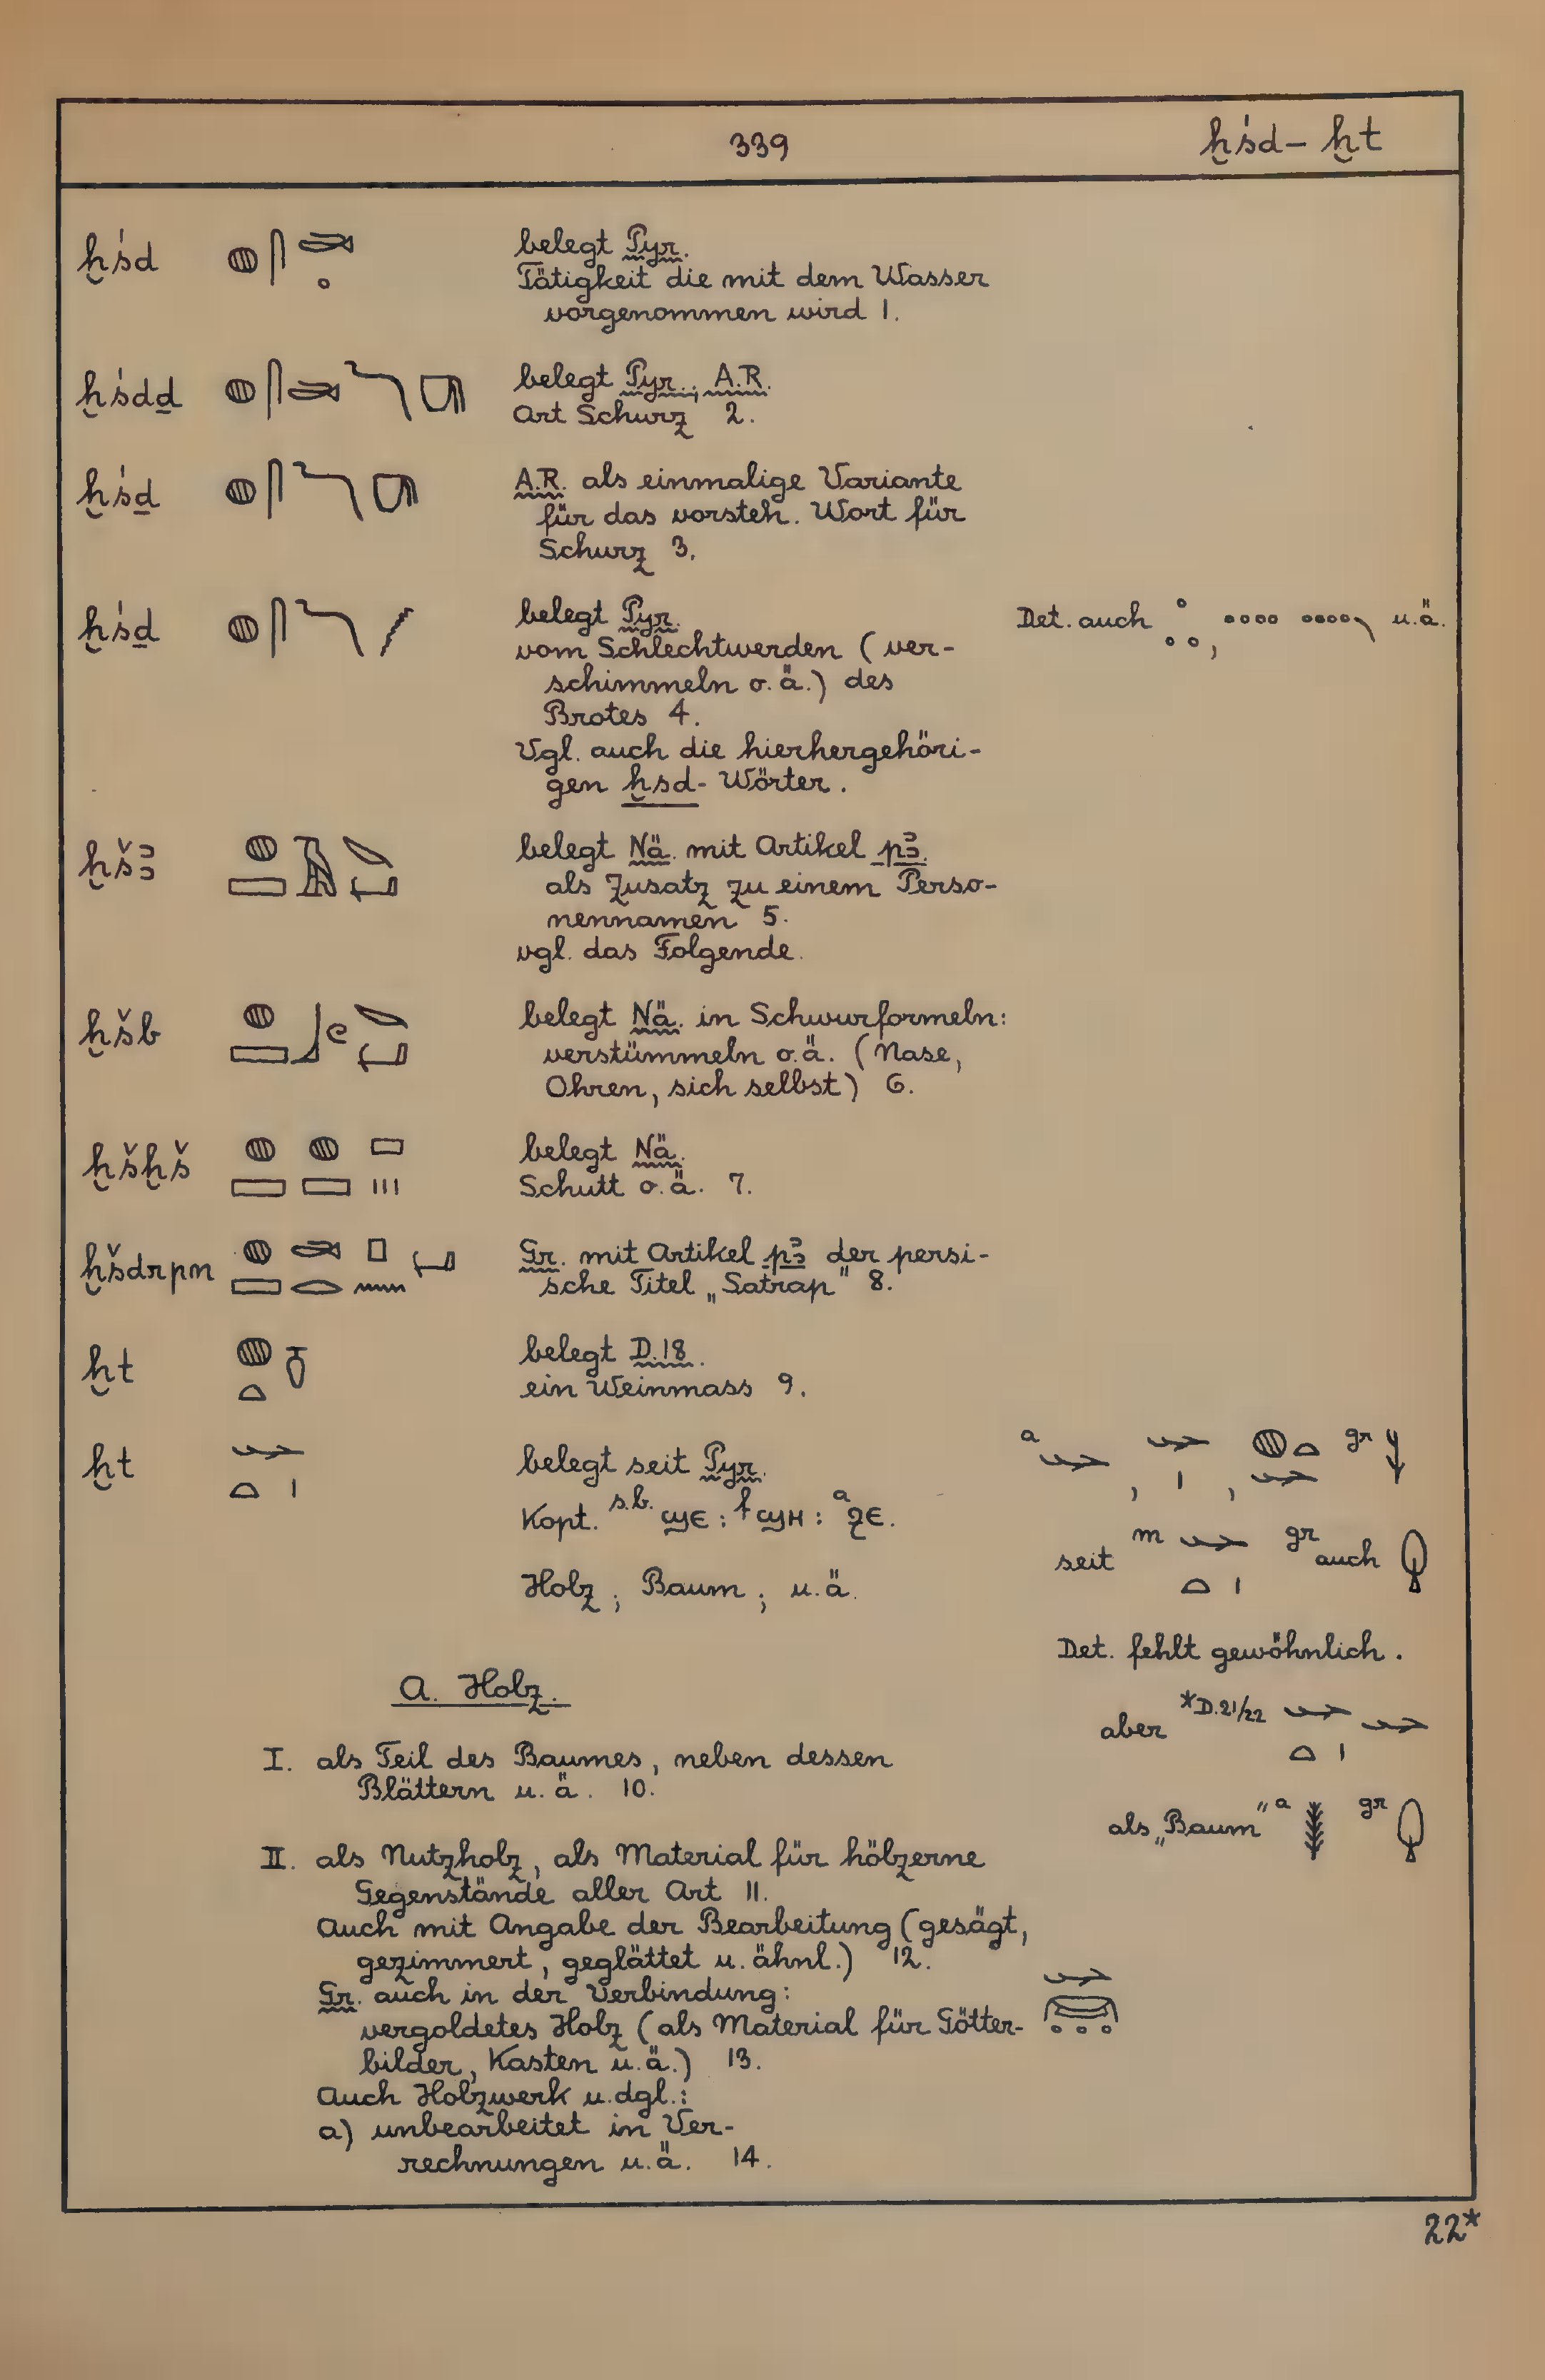 339 ḫśd – ḫt
ḫśd belegt Pyr.
Tätigkeit die mit dem Wasser
vorgenommen wird 1.
ḫśdḏ belegt Pyr., A.R.
Art Schurz 2.
ḫśḏ A.R. als einmalige Variante
für das vorsteh. Wort für
Schurz 3.
ḫśḏ belegt Pyr. Det. auch , u.ä.
vom Schlechtwerden (ver-
schimmeln o.ä.) des
Brotes 4.
Vgl. auch die hierhergehöri-
gen ḫsd-Wörter.
ḫšꜣ belegt Nä. mit Artikel pꜣ.
als Zusatz zu einem Perso-
nennamen 5.
vgl. das Folgende.
ḫšb belegt Nä. in Schwurformeln:
verstümmeln o.ä. (Nase,
Ohren, sich selbst) 6.
ḫšḫš belegt Nä.
Schutt o.ä. 7.
ḫšdrpn Gr. mit Artikel pꜣ der persi-
sche Titel „Satrap" 8.
ḫt belegt D.18.
ein Weinmass 9.
ḫt belegt seit Pyr.
Kopt. s.b. ϣⲉ : f ϣⲏ : a ϩⲉ.
Holz; Baum; u.ä.
a , , gr
seit m gr auch
Det. fehlt gewöhnlich.
aber *D.21/22
als „Baum" a gr
A. Holz.
I. als Teil des Baumes, neben dessen
Blättern u.ä. 10.
II. als Nutzholz, als Material für hölzerne
Gegenstände aller Art 11.
Auch mit Angabe der Bearbeitung (gesägt,
gezimmert, geglättet u. ähnl.) 12.
Gr. auch in der Verbindung:
vergoldetes Holz (als Material für Götter-
bilder, Kasten u.ä.) 13.
Auch Holzwerk u.dgl.:
a) unbearbeitet in Ver-
rechnungen u.ä. 14.
22*